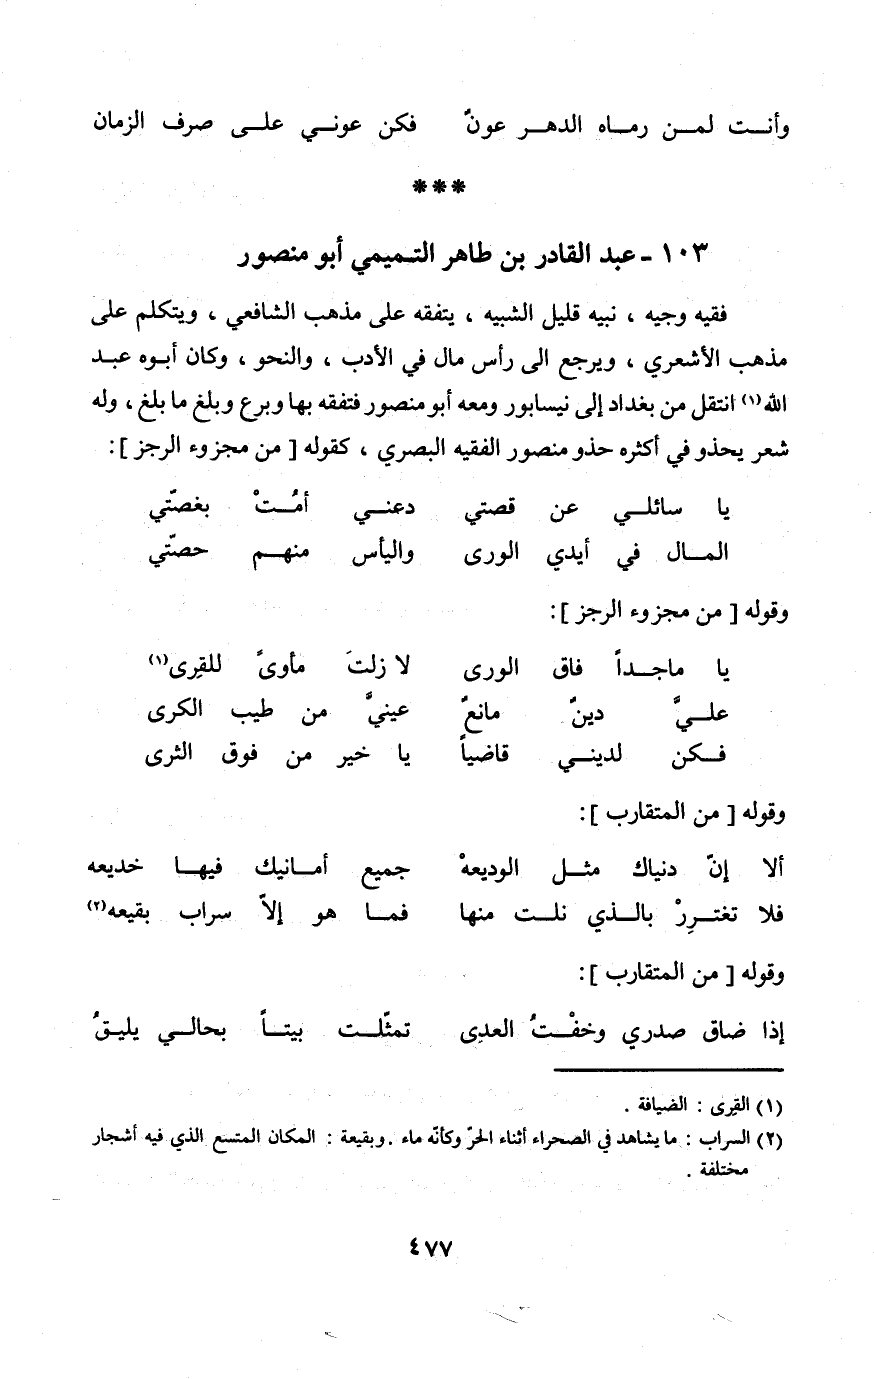 وأنــت لمــن رمــاه الدهــر عونٌ فكن عونــي علــى صرف الزمان
***
١٠٣ - عبد القادر بن طاهر التميمي أبو منصور
فقيه وجيه ، نبيه قليل الشبيه ، يتفقه على مذهب الشافعي ، ويتكلم على
مذهب الأشعري ، ويرجع الى رأس مال في الأدب ، والنحو ، وكان أبوه عبد
الله(١) انتقل من بغداد إلى نيسابور ومعه أبو منصور فتفقه بها وبرع وبلغ ما بلغ ، وله
شعر يحذو في أكثره حذو منصور الفقيه البصري ، كقوله [ من مجزوء الرجز ]:
يا سائلــي عن قصتي دعنــي أمُــتْ بغصّتي
المــال في أيدي الورى واليأس منهــم حصّتي
وقوله [ من مجزوء الرجز ]:
يا ماجــداً فاق الورى لا زلتَ مأوىً للقِرى(١)
علــيَّ دينٌ مانعٌ عينيَّ من طيب الكرى
فــكن لدينــي قاضياً يا خير من فوق الثرى
وقوله [ من المتقارب ]:
ألا إنّ دنياك مثــل الوديعهْ جميع أمــانيك فيهــا خديعه
فلا تغتــرِرْ بالــذي نلــت منها فمــا هو إلاّ سراب بقيعه(٢)
وقوله [ من المتقارب ]:
إذا ضاق صدري وخفْــتُ العدِى تمثّلــت بيتــاً بحالــي يليــقُ
(١) القِرى : الضيافة .
(٢) السراب : ما يشاهد في الصحراء أثناء الحرّ وكأنّه ماء . وبقيعة : المكان المتسع الذي فيه أشجار
مختلفة .
٤٧٧